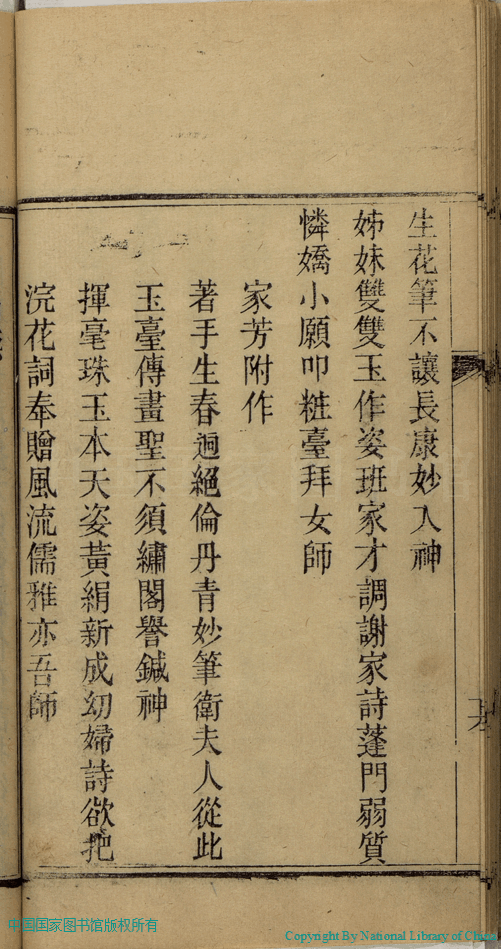 生花筆不讓長康妙入神
姊妹雙雙玉作姿班家才調謝家詩蓬門弱質
憐嬌小願叩粧臺拜女師
家芳附作
著手生春迥絕倫丹青妙筆衛夫人從此
玉臺傳畫聖不須繡閣譽鍼神
揮毫珠玉本天姿黃絹新成幼婦詩欲把
浣花詞奉贈風流儒雅亦吾師
中国国家图书馆版权所有
Copyright By National Library of China